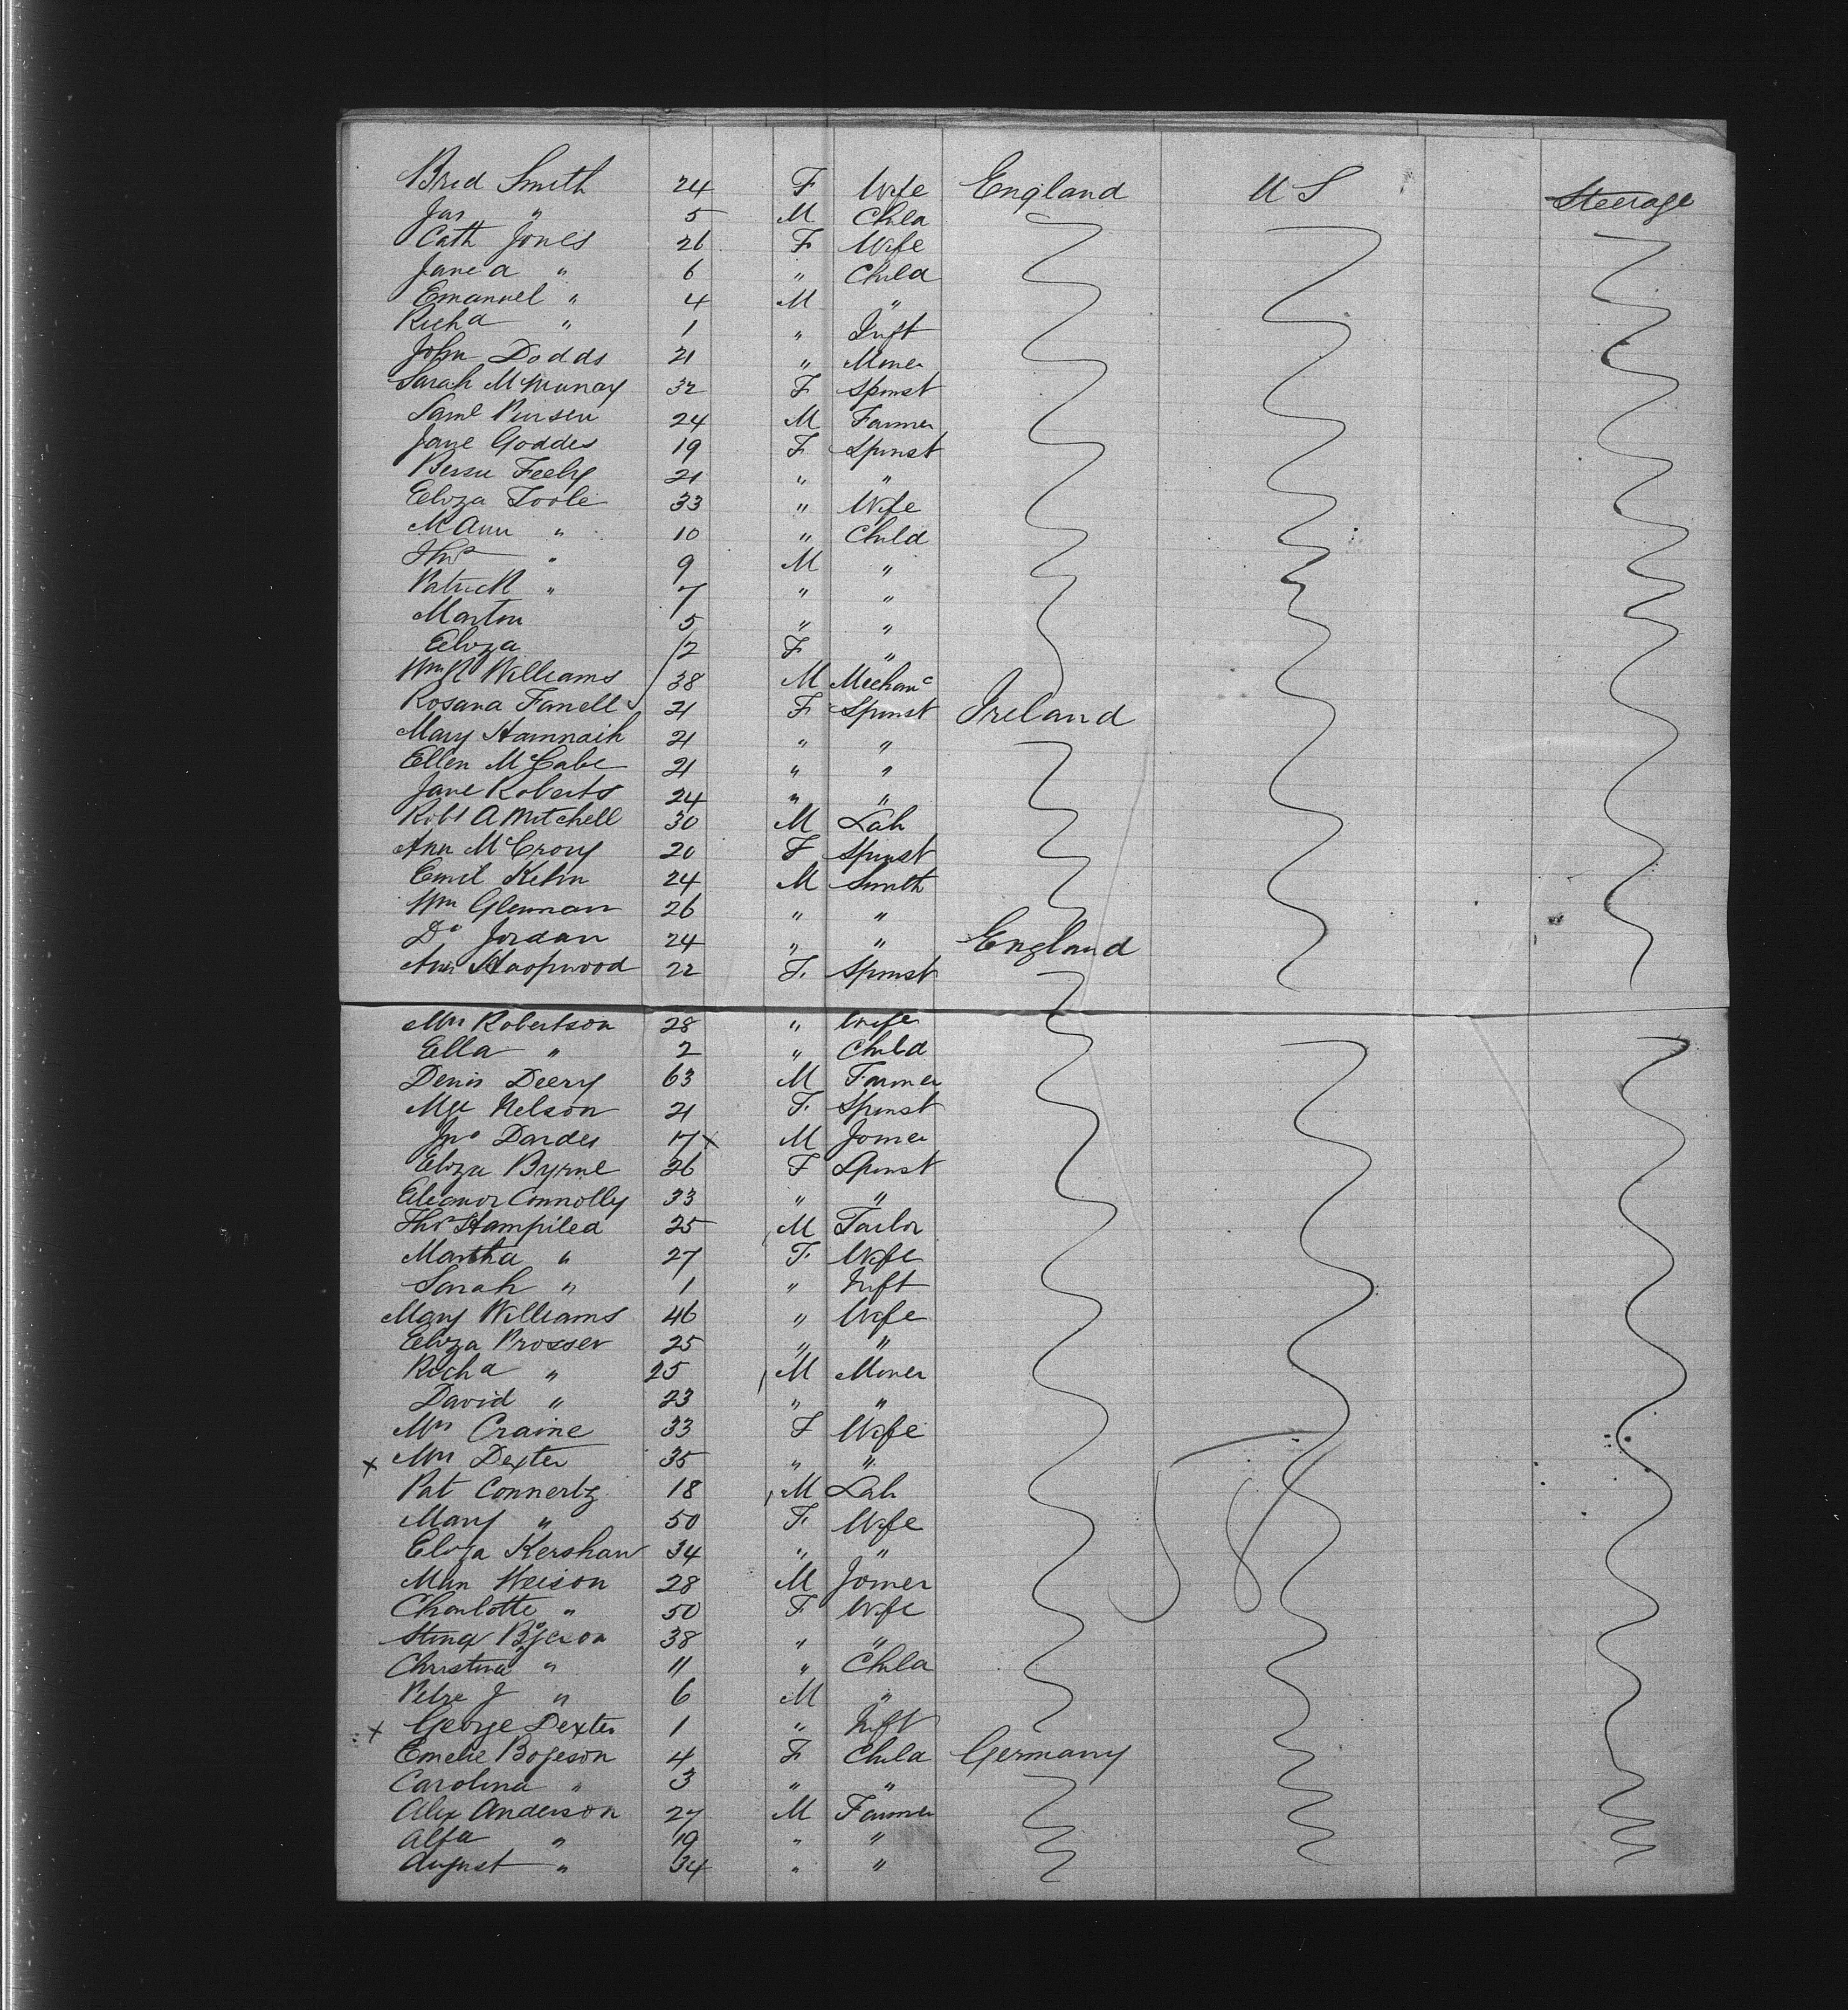 Brid Smith 24 F Wife England U S Steerage
Jas " 5 M Child
Cath Jones 26 F Wife
Jane A " 6 " Child
Emanuel " 4 M "
Richd " 1 " Inft
John Dodds 21 " Miner
Sarah McMurray 32 F Spinst
Saml Pursen 24 M Farmer
Jane Goddes 19 F Spinst
Bessie Feely 21 " "
Eliza Toole 33 " Wife
M Ann " 10 " Child
Thos " 9 M "
Patrick " 7 " "
Martin 5 " "
Eliza /2 F "
Wm Williams 38 M Mechanc
Rosana Farrell 21 F Spinst Ireland
Mary Hannaih 21 " "
Ellen McCabe 21 " "
Jane Roberts 24 " "
Robt A Mitchell 30 M Lab
Ann McCrory 20 F Spinst
Emil Kehn 24 M Smith
Wm Glennan 26 " "
Do Jordan 24 " " England
Ann Hoopwood 22 F. Spinst
Mrs Robertson 28 " Wife
Ella " 2 " Child
Denis Deery 63 M Farmer
Mge Nelson 21 F. Spinst
Jno Dardes 17 x M Joiner
Eliza Byrne 26 F Spinst
Eleanor Connolly 33 " "
Thos Hampiled 25 M Tailor
Martha " 27 F. Wife
Sarah " 1 " Inft
Mary Williams 46 " Wife
Eliza Prosser 25 " "
Richd " 25 M Miner
David " 23 " "
Mrs Craine 33 F Wife
x Mrs Dexter 35 " "
Pat Connerty 18 M Lab
Mary " 50 F. Wife
Eliza Kershaw 34 " "
Weison 28 M Joiner
Charlotte " 50 F Wife
38 " "
Christina " 11 " Child
Petre J " 6 M "
x George Dexter 1 " Inft
Emelie Bojeson 4 F Child Germany
Carolina " 3 " "
Alex Anderson 27 M Farmer
Alfa " 19 " "
August " 34 " "
58